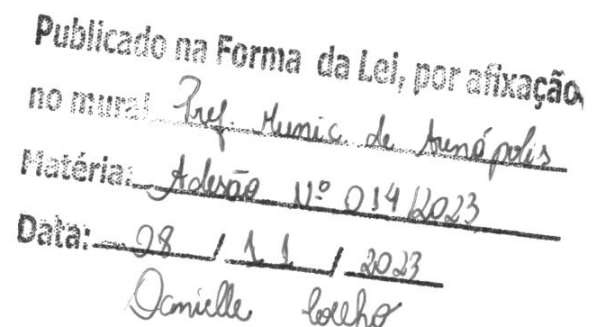 Publicado na Forma da Lei, por afixação
no mural Pref. Munic. de Arenápolis
Matéria: Adesão Nº 014/2023
Data: 08 / 11 / 2023
Danielle Coelho